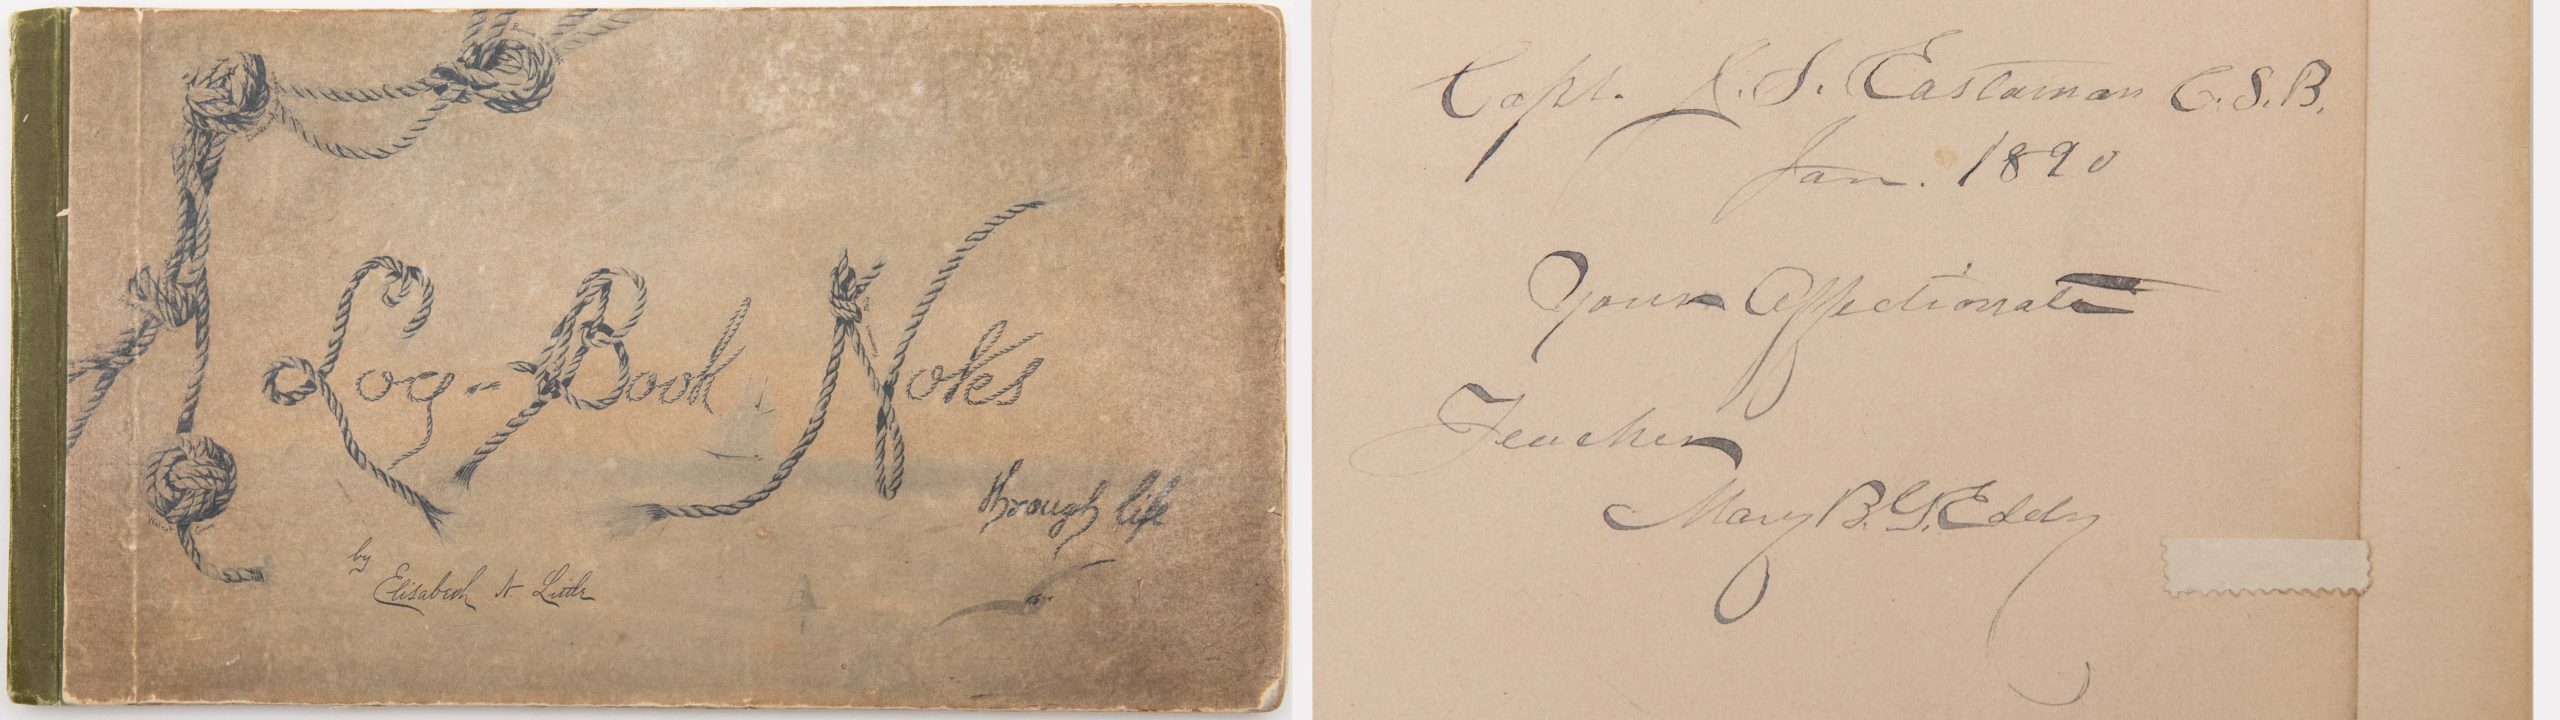 Log-Book Notes
through life
by
Elisabeth N Little
Walnut Crown
Capt. J. S. Eastaman C.S.B.
Jan. 1890
Your Affectionate
Teacher
Mary B. G. Eddy